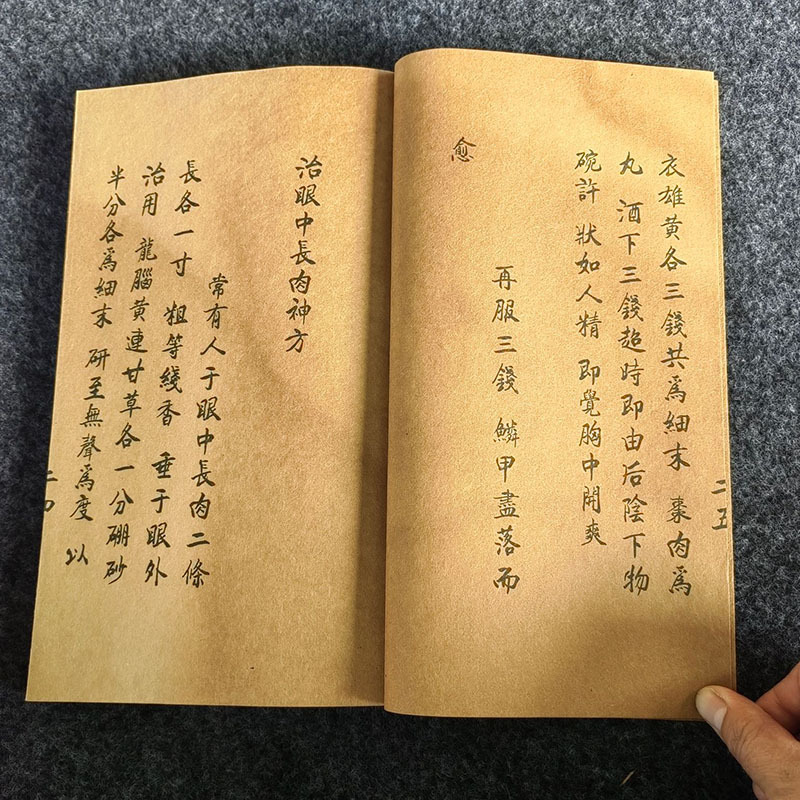 衣雄黄各三錢共爲細末 棗肉爲
丸 酒下三錢超時即由后陰下物
碗許 狀如人精 即覺胸中開爽
再服三錢 鱗甲盡落而
愈
二五
治眼中長肉神方
常有人于眼中長肉二條
長各一寸 粗等綫香 垂于眼外
治用 龍腦黄連甘草各一分硼砂
半分各爲細末 研至無聲爲度 以